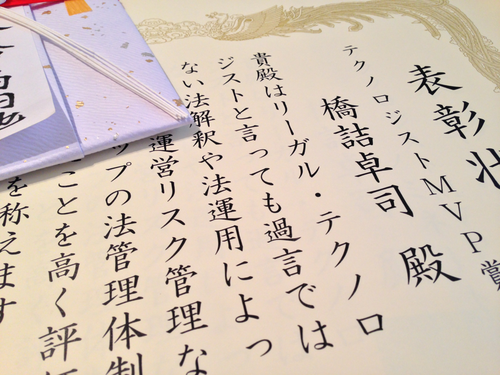 表彰状
テクノロジストMVP賞
橋詰卓司 殿
貴殿はリーガル・テクノロ
ジストと言っても過言では
ない法解釈や法運用によっ
運営リスク管理な
ップの法管理体制
ことを高く評
を称えます